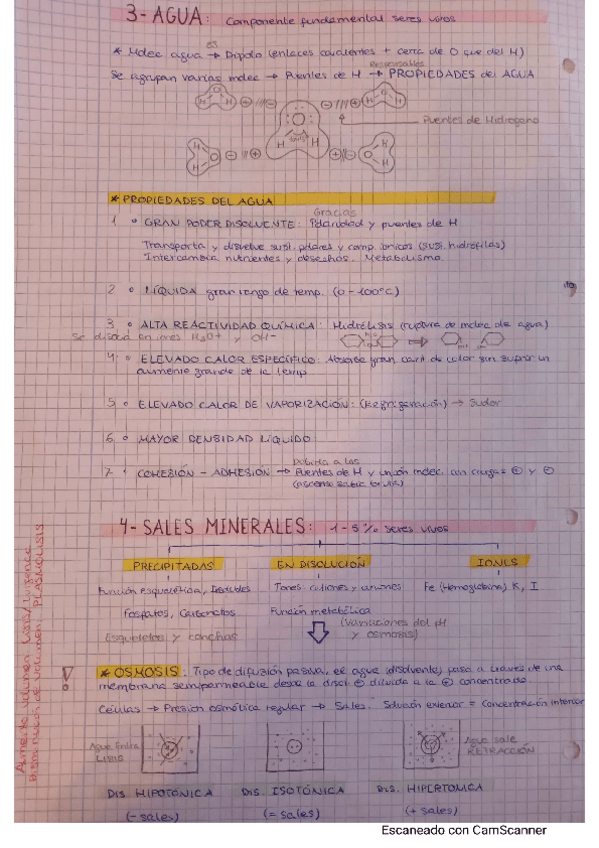 3- AGUA: Componente fundamental seres vivos
es
* Molec agua → Dipolo (enlaces covalentes + cerca de O que del H)
Responsables
Se agrupan varias molec → Puentes de H → PROPIEDADES del AGUA
Puentes de Hidrogeno
* PROPIEDADES DEL AGUA
Gracias
1 • GRAN PODER DISOLVENTE: Polaridad y puentes de H
Transporta y disuelve sust. polares y comp. ionicos (sust. hidrófilas)
Intercambia nutrientes y desechos. Metabolismo
2 • LÍQUIDA gran rango de temp. (0-100ºC)
3 • ALTA REACTIVIDAD QUÍMICA: Hidrólisis (ruptura de molec de agua)
Se disocia en iones H3O+ y OH-
4 • ELEVADO CALOR ESPECÍFICO: Absorbe gran cant de calor sin suponer un
aumento grande de la temp
5 • ELEVADO CALOR DE VAPORIZACIÓN: (Refrigeración) → Sudor
6 • MAYOR DENSIDAD LÍQUIDO
Debido a los
7 • COHESIÓN - ADHESIÓN → Puentes de H y unión molec. con cargas + y -
(ascenso savia bruta)
4- SALES MINERALES: 1-5% seres vivos
PRECIPITADAS EN DISOLUCIÓN IONES
Función esquelética, Insolubles Tones: cationes y aniones Fe (Hemoglobina) K, I
Fosfatos, Carbonatos Función metabólica
Esqueletos y conchas (variaciones del pH
y osmosis)
* OSMOSIS: Tipo de difusión pasiva, el agua (disolvente) pasa a traves de una
membrana semipermeable desde la disol. + diluida a la + concentrada.
Células → Presion osmótica regular → Sales. Solución exterior = Concentración interior
Agua entra Agua sale
LISIS RETRACCIÓN
DIS. HIPOTÓNICA DIS. ISOTÓNICA DIS. HIPERTONICA
(- sales) (= sales) (+ sales)
Aumento volumen: Lisis/Turgencia
Disminución de volumen: PLASMOLISIS
Escaneado con CamScanner